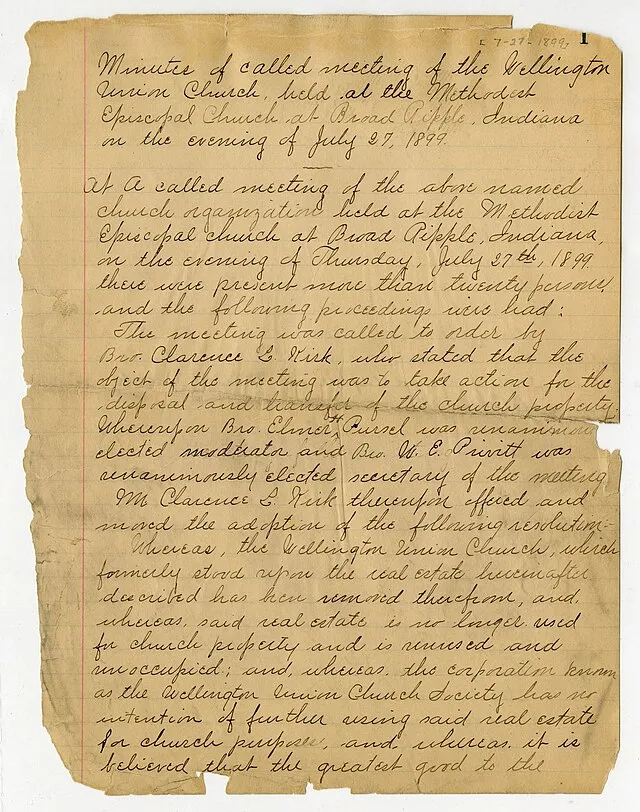 [ 7-27-1899]
1
Minutes of called meeting of the Wellington
Union Church, held at the Methodest
Episcopal Church at Broad Ripple, Indiana
on the evening of July 27, 1899.
At A called meeting of the above named
church organization held at the Methodist
Episcopal church at Broad Ripple, Indiana,
on the evening of Thursday, July 27th, 1899
there were present more than twenty persons,
and the following proceedings were had:
The meeting was called to order by
Bro. Clarence L. Kirk, who stated that the
object of the meeting was to take action for the
disposal and transfer of the church property.
Whereupon Bro. Elmer H Pursel was unanimous
elected moderator and Bro. W. E. Privitt was
unanimously elected secretary of the meeting
Mr Clarence L. Kirk thereupon offered and
moved the adoption of the following resolution-
Whereas, the Wellington Union Church, which
formerly stood upon the real estate hereinafter
described has been removed therefrom, and,
whereas, said real estate is no longer used
for church property and is unused and
unoccupied; and, whereas, the corporation known
as the Wellington Union Church Society has no
intention of further using said real estate
for church purposes, and whereas, it is
believed that the greatest good to the